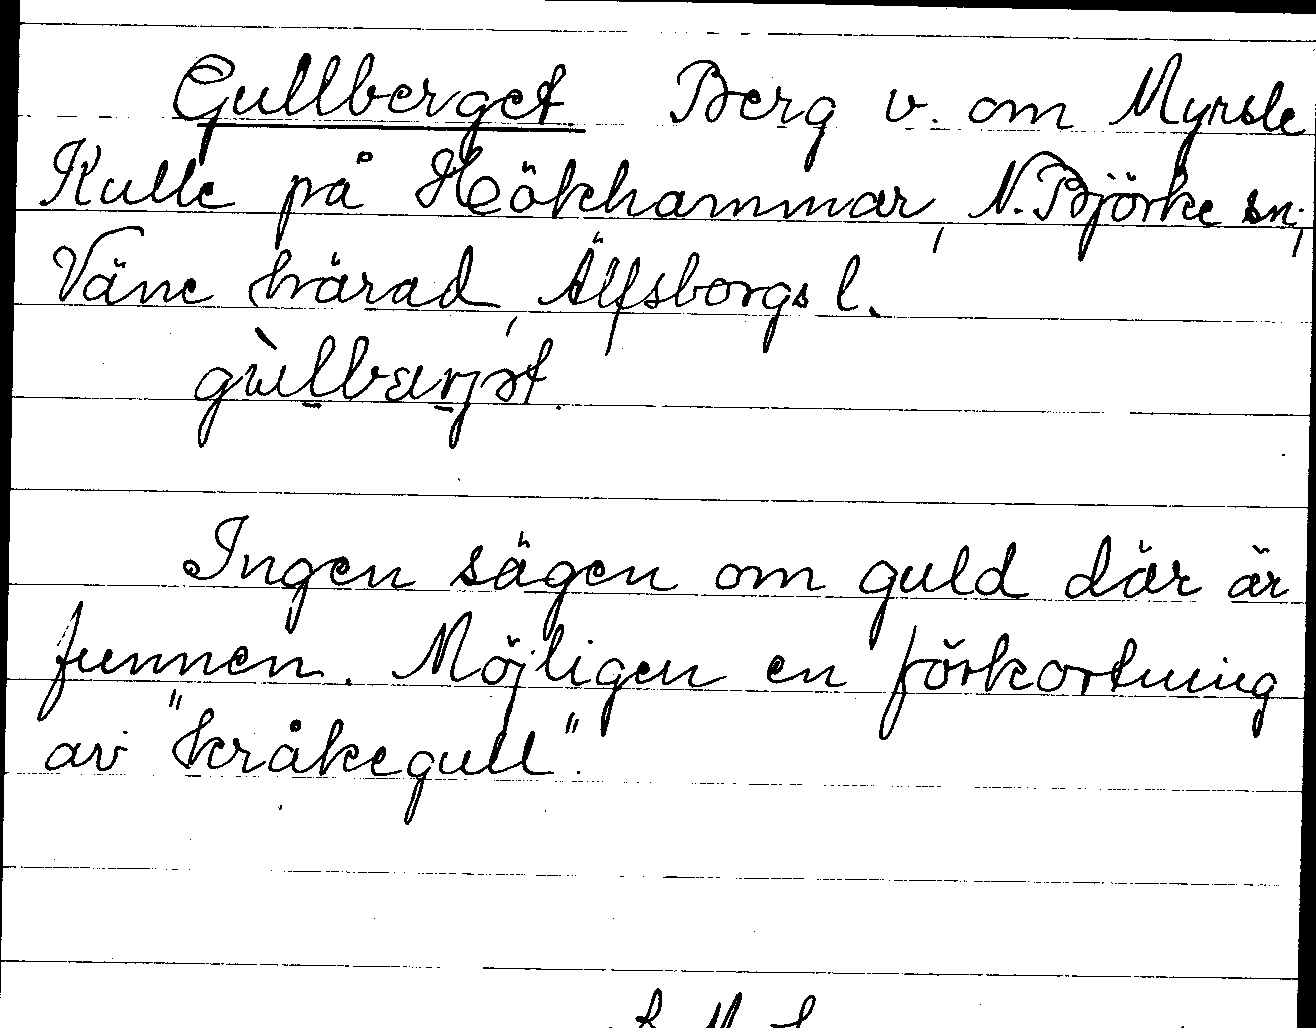 Gullberget Berg v. om Myrsle
Kulle på Hökhammar, N. Björke sn;
Väne härad, Älfsborgs l.
Ingen sägen om guld där är
funnen. Möjligen en förkortning
av "kråkegull".